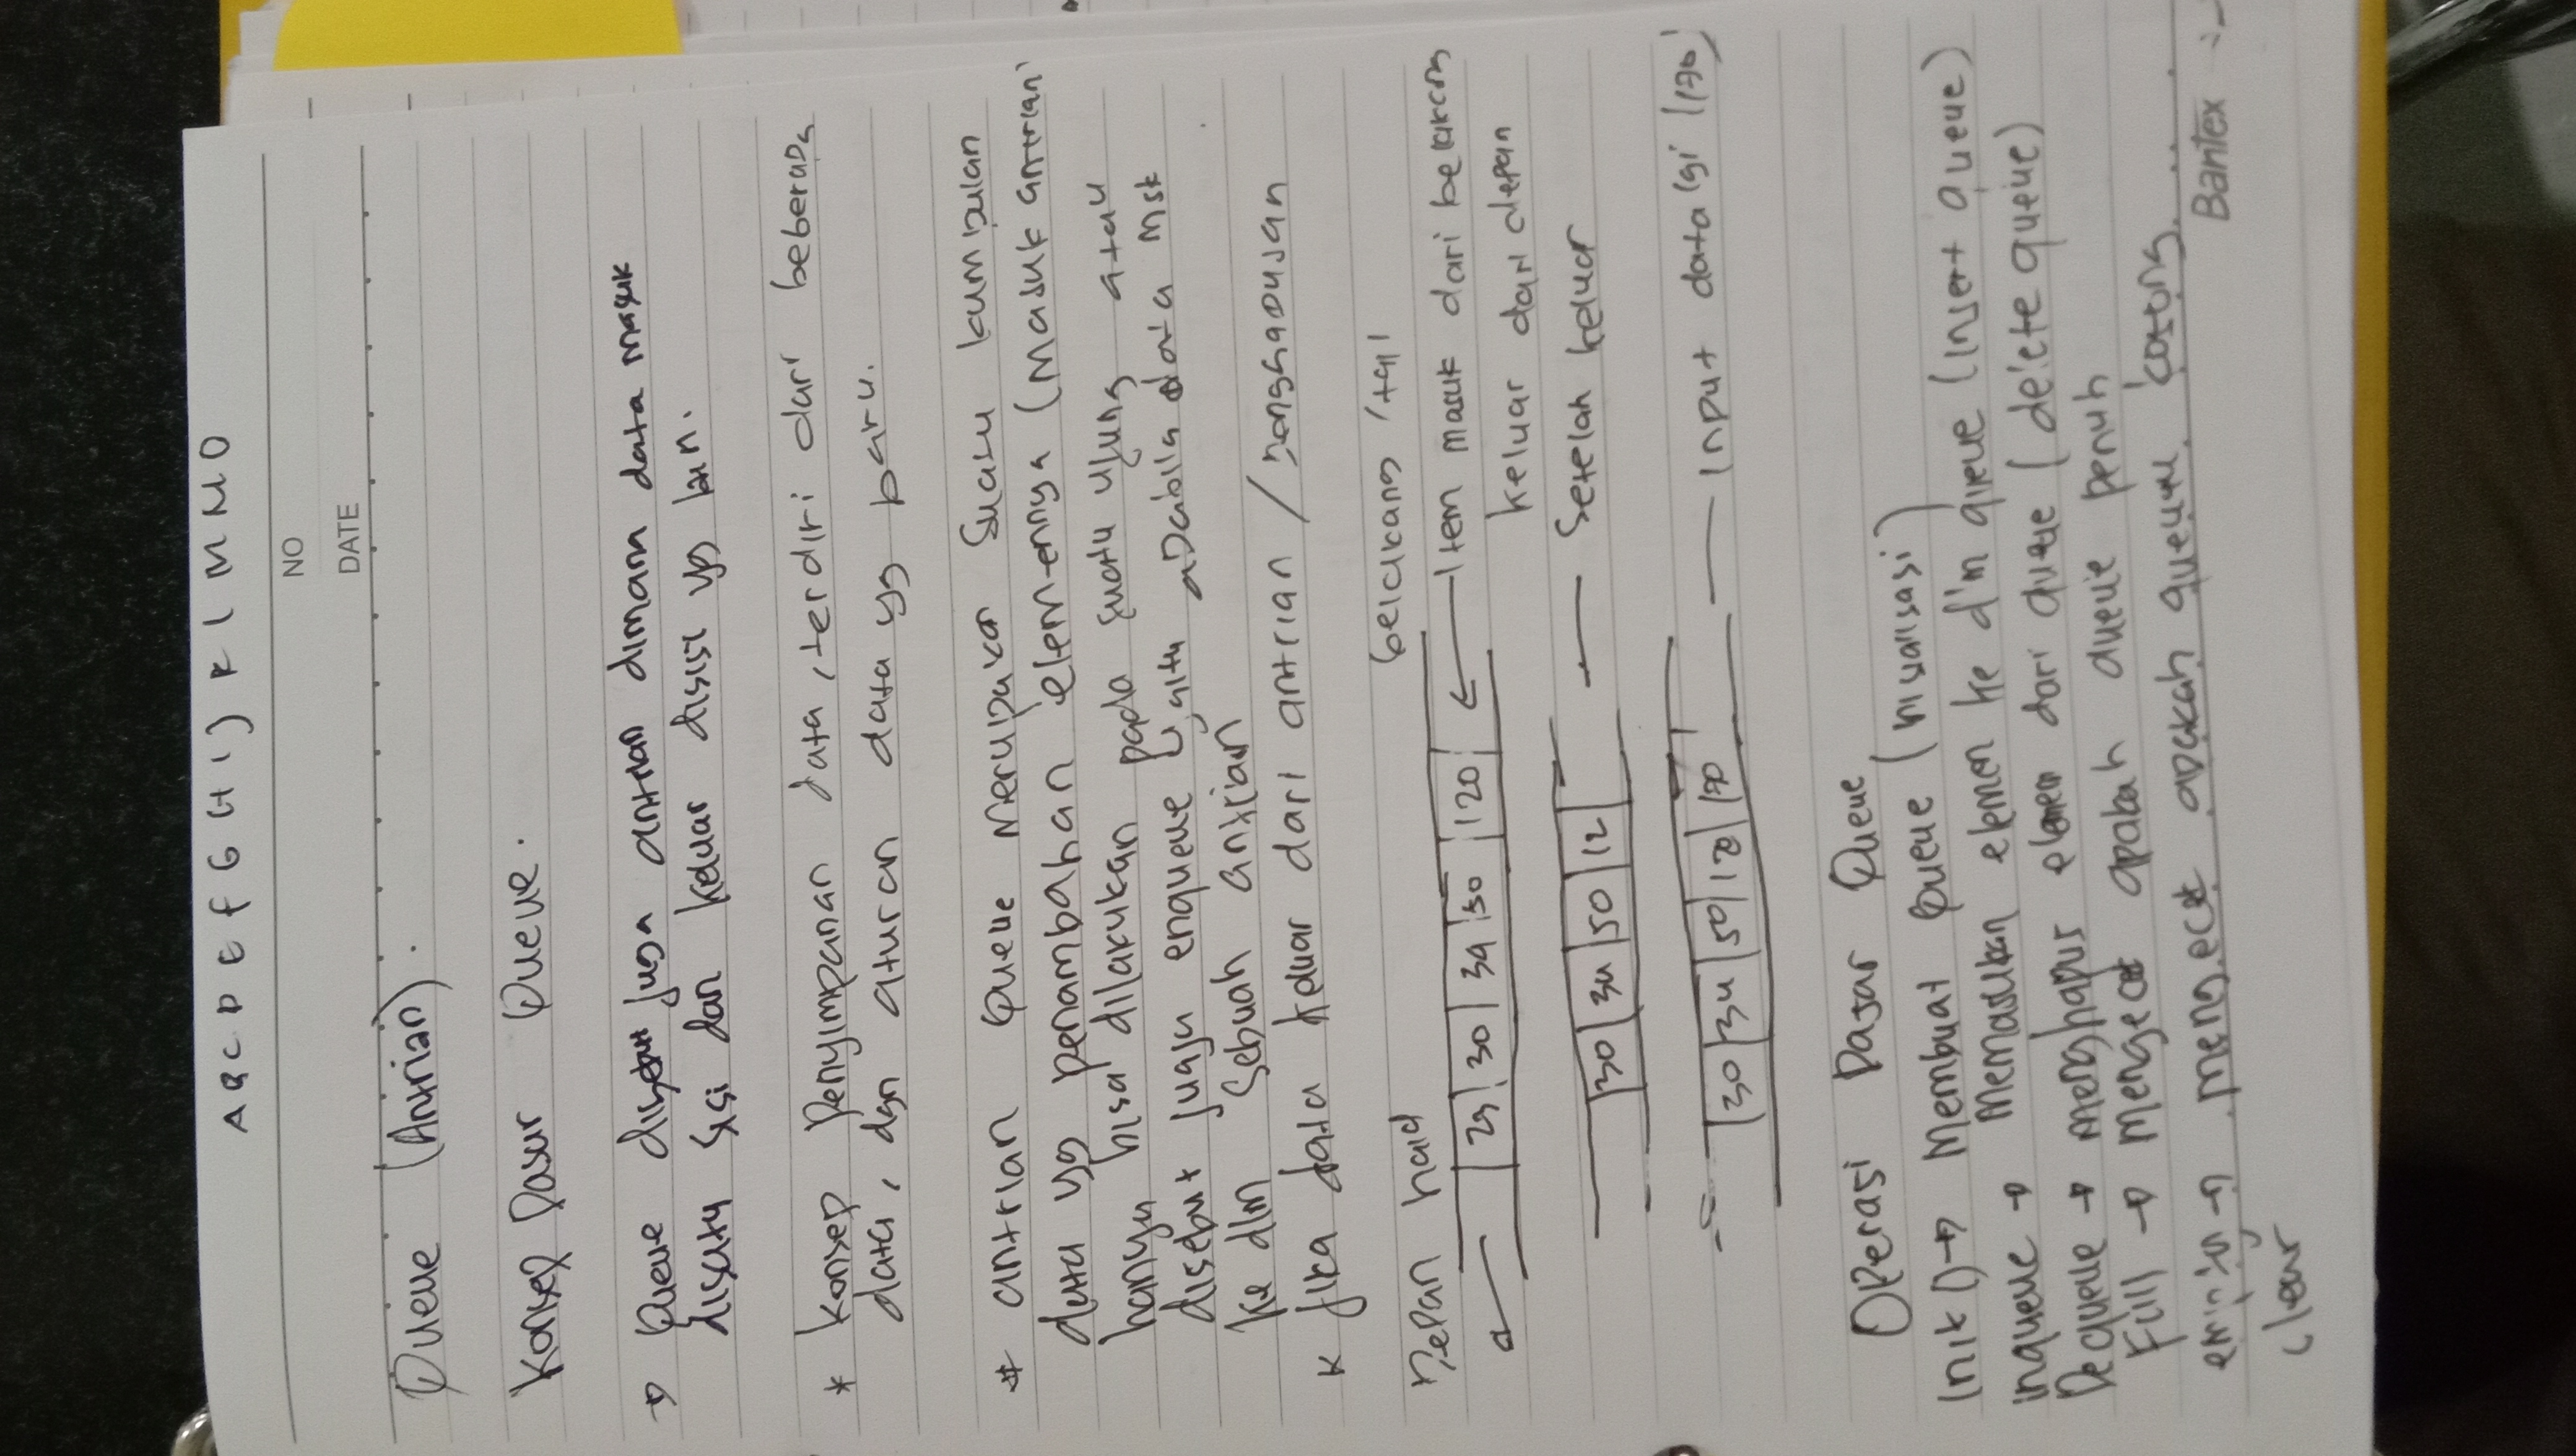 A B C D E F G H I J K L M N O
NO
DATE
Queue (Antrian).
Konsep Dasar Queue.
→ Queue disebut juga antrian dimana data masuk
disatu sisi dan keluar disisi yg lain.
* Konsep Penyimpanan data, terdiri dari beberapa
data, dgn aturan data yg baru.
* antrian Queue merupakan suatu kumpulan
data yg penambahan elemennya (masuk antrian)
hanya bisa dilakukan pada suatu ujung atau
disebut juga enqueue yaitu apabila data msk
ke dlm sebuah antrian
* Jika data keluar dari antrian / penghapusan
Depan head belakang / tail
29 30 34 50 120 ← Item masuk dari belakang
keluar dari depan
30 34 50 12 — Setelah keluar
30 34 50 12 170 — Input data lgi 170
Operasi Dasar Queue
Init() → Membuat Queue (Inisialisasi)
inqueue → Memasukkan elemen ke d'm queue (Insert queue)
Dequeue → Menghapus elemen dari queue (delete queue)
Full → Mengecek apakah queue penuh
→ mengecek apakah queue kosong
clear
Bantex